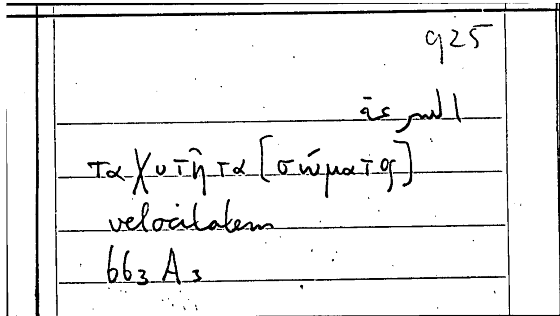 925
السرعة
ταχυτῆτα [σώματος]
velocitatem
663 A 3